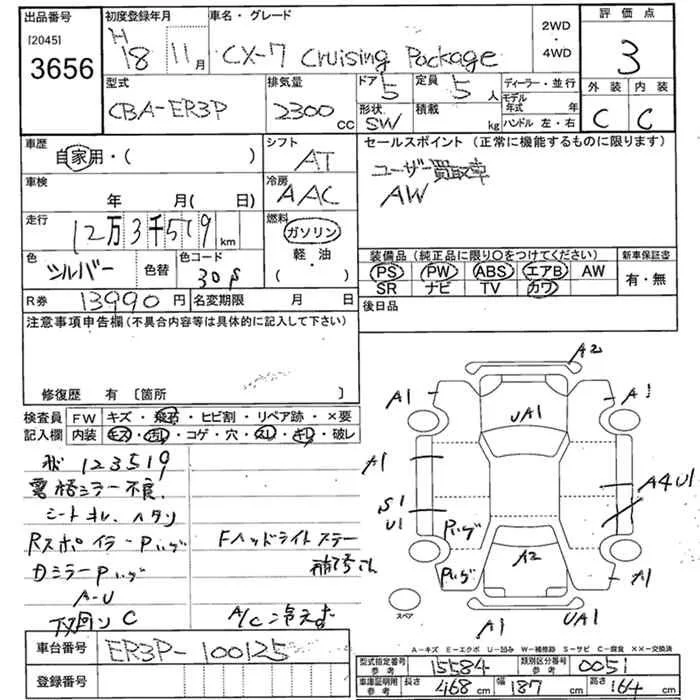 出品番号
[2045]
3656
初度登録年月
H 18 11月
車名・グレード
CX-7 Cruising Package
2WD
・
4WD
評価点
3
型式
CBA-ER3P
排気量
2300 cc
ドア 5
定員 5 人
形状 SW
積載 kg
ディーラー・並行
モデル年式 年
ハンドル 左・右
外装 内装
C C
車歴
自家用・( )
シフト
AT
セールスポイント (正常に機能するものに限ります)
ユーザー買取車
AW
車検
年 月( 日)
冷房
AAC
走行
12万3千519 km
燃料
ガソリン
軽・油
・( )
色
シルバー
色替
色コード
30P
装備品 (純正品に限り○をつけてください)
PS PW ABS エアB AW
SR ナビ TV カワ
新車保証書
有・無
R券 13990 円
名変期限 月 日
後日品
注意事項申告欄 (不具合内容等は具体的に記入して下さい)
修復歴 有 〔箇所 〕
検査員
記入欄
FW キズ・飛石・ヒビ割・リペア跡・×要
内装 キズ・汚れ・コゲ・穴・スレ・キレ・破レ
123519
ミラー不良
シートキレ、ヘタリ
Rスポイラー Pハゲ
Dミラー Pハゲ
A-U
下廻り C
Fヘッドライトステー
補修
A/C 冷えず
A2
A1
A1
UA1
A1
A4 U1
S1
U1
Pハゲ
A2
Pハゲ
A1
A1
UA1
スペア
A-キズ E-エクボ U-凹み W-補修跡 S-サビ C-腐食 XX-交換済
車台番号
ER3P-100125
登録番号
型式指定番号
参考
15584
類別区分番号
参考
0051
車庫証明用
参考
長さ 468 cm
幅 187 cm
高さ 164 cm